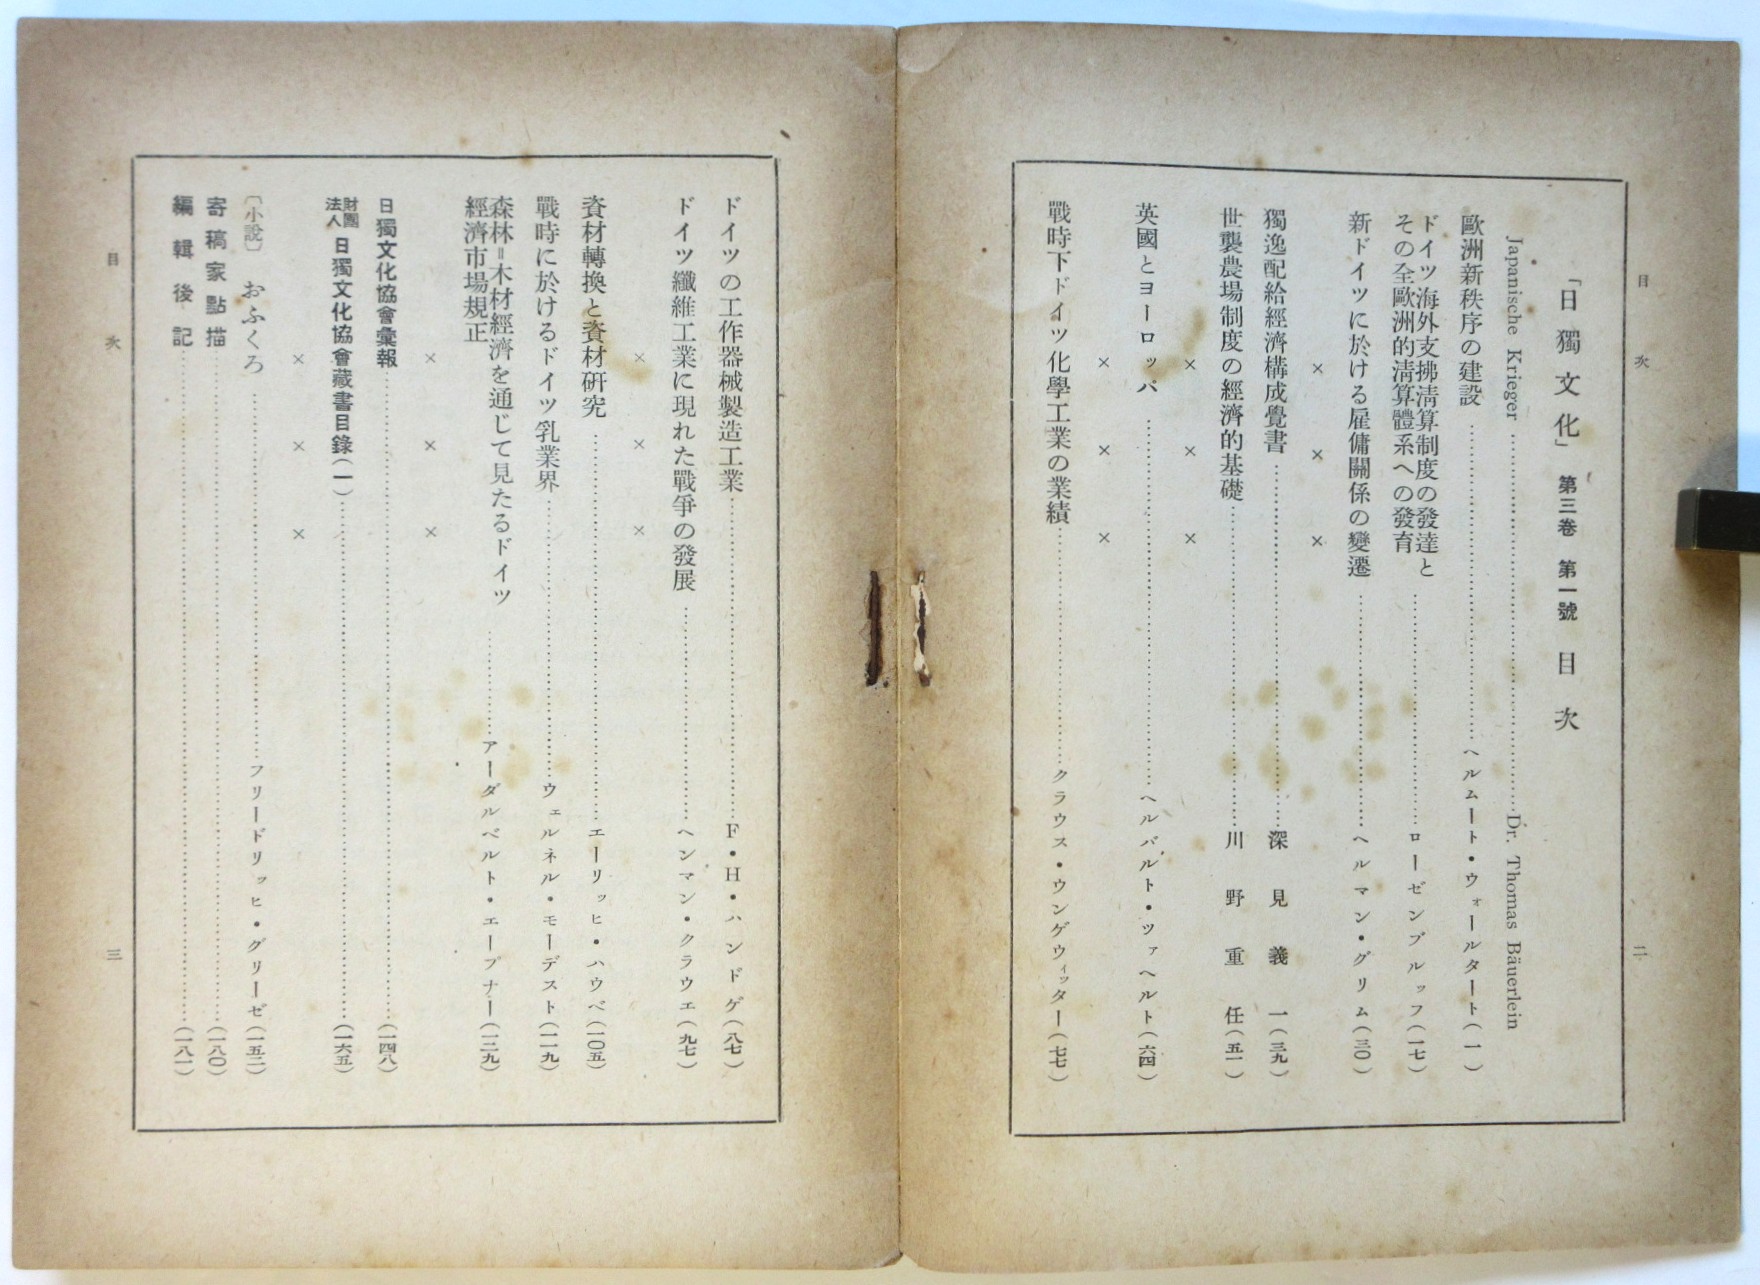 目次
二
「日獨文化」 第三卷 第一號 目次
Japanische Krieger……Dr. Thomas Bäuerlein
歐洲新秩序の建設……ヘルムート・ウォールタート(一)
ドイツ海外支拂淸算制度の發達と
その全歐洲的淸算體系への發育……ローゼンブルッフ(一七)
新ドイツに於ける雇傭關係の變遷……ヘルマン・グリム(三〇)
× × ×
獨逸配給經濟構成覺書……深見義一(三九)
世襲農場制度の經濟的基礎……川野重任(五一)
× × ×
英國とヨーロッパ……ヘルバルト・ツァヘルト(六四)
× × ×
戰時下ドイツ化學工業の業績……クラウス・ウンゲウィッター(七七)
ドイツの工作器械製造工業……F・H・ハンドゲ(八七)
ドイツ纖維工業に現れた戰爭の發展……ヘンマン・クラウエ(九七)
× × ×
資材轉換と資材硏究……エーリッヒ・ハウベ(一〇五)
戰時に於けるドイツ乳業界……ウェルネル・モーデスト(一一九)
森林=木材經濟を通じて見たるドイツ
經濟市場規正……アーダルベルト・エーブナー(一二九)
× × ×
日獨文化協會彙報……(一四八)
財團法人 日獨文化協會藏書目錄(一)……(一六五)
× × ×
〔小說〕 おふくろ……フリードリッヒ・グリーゼ(一五二)
寄稿家點描……(一八〇)
編輯後記……(一八一)
目次
三